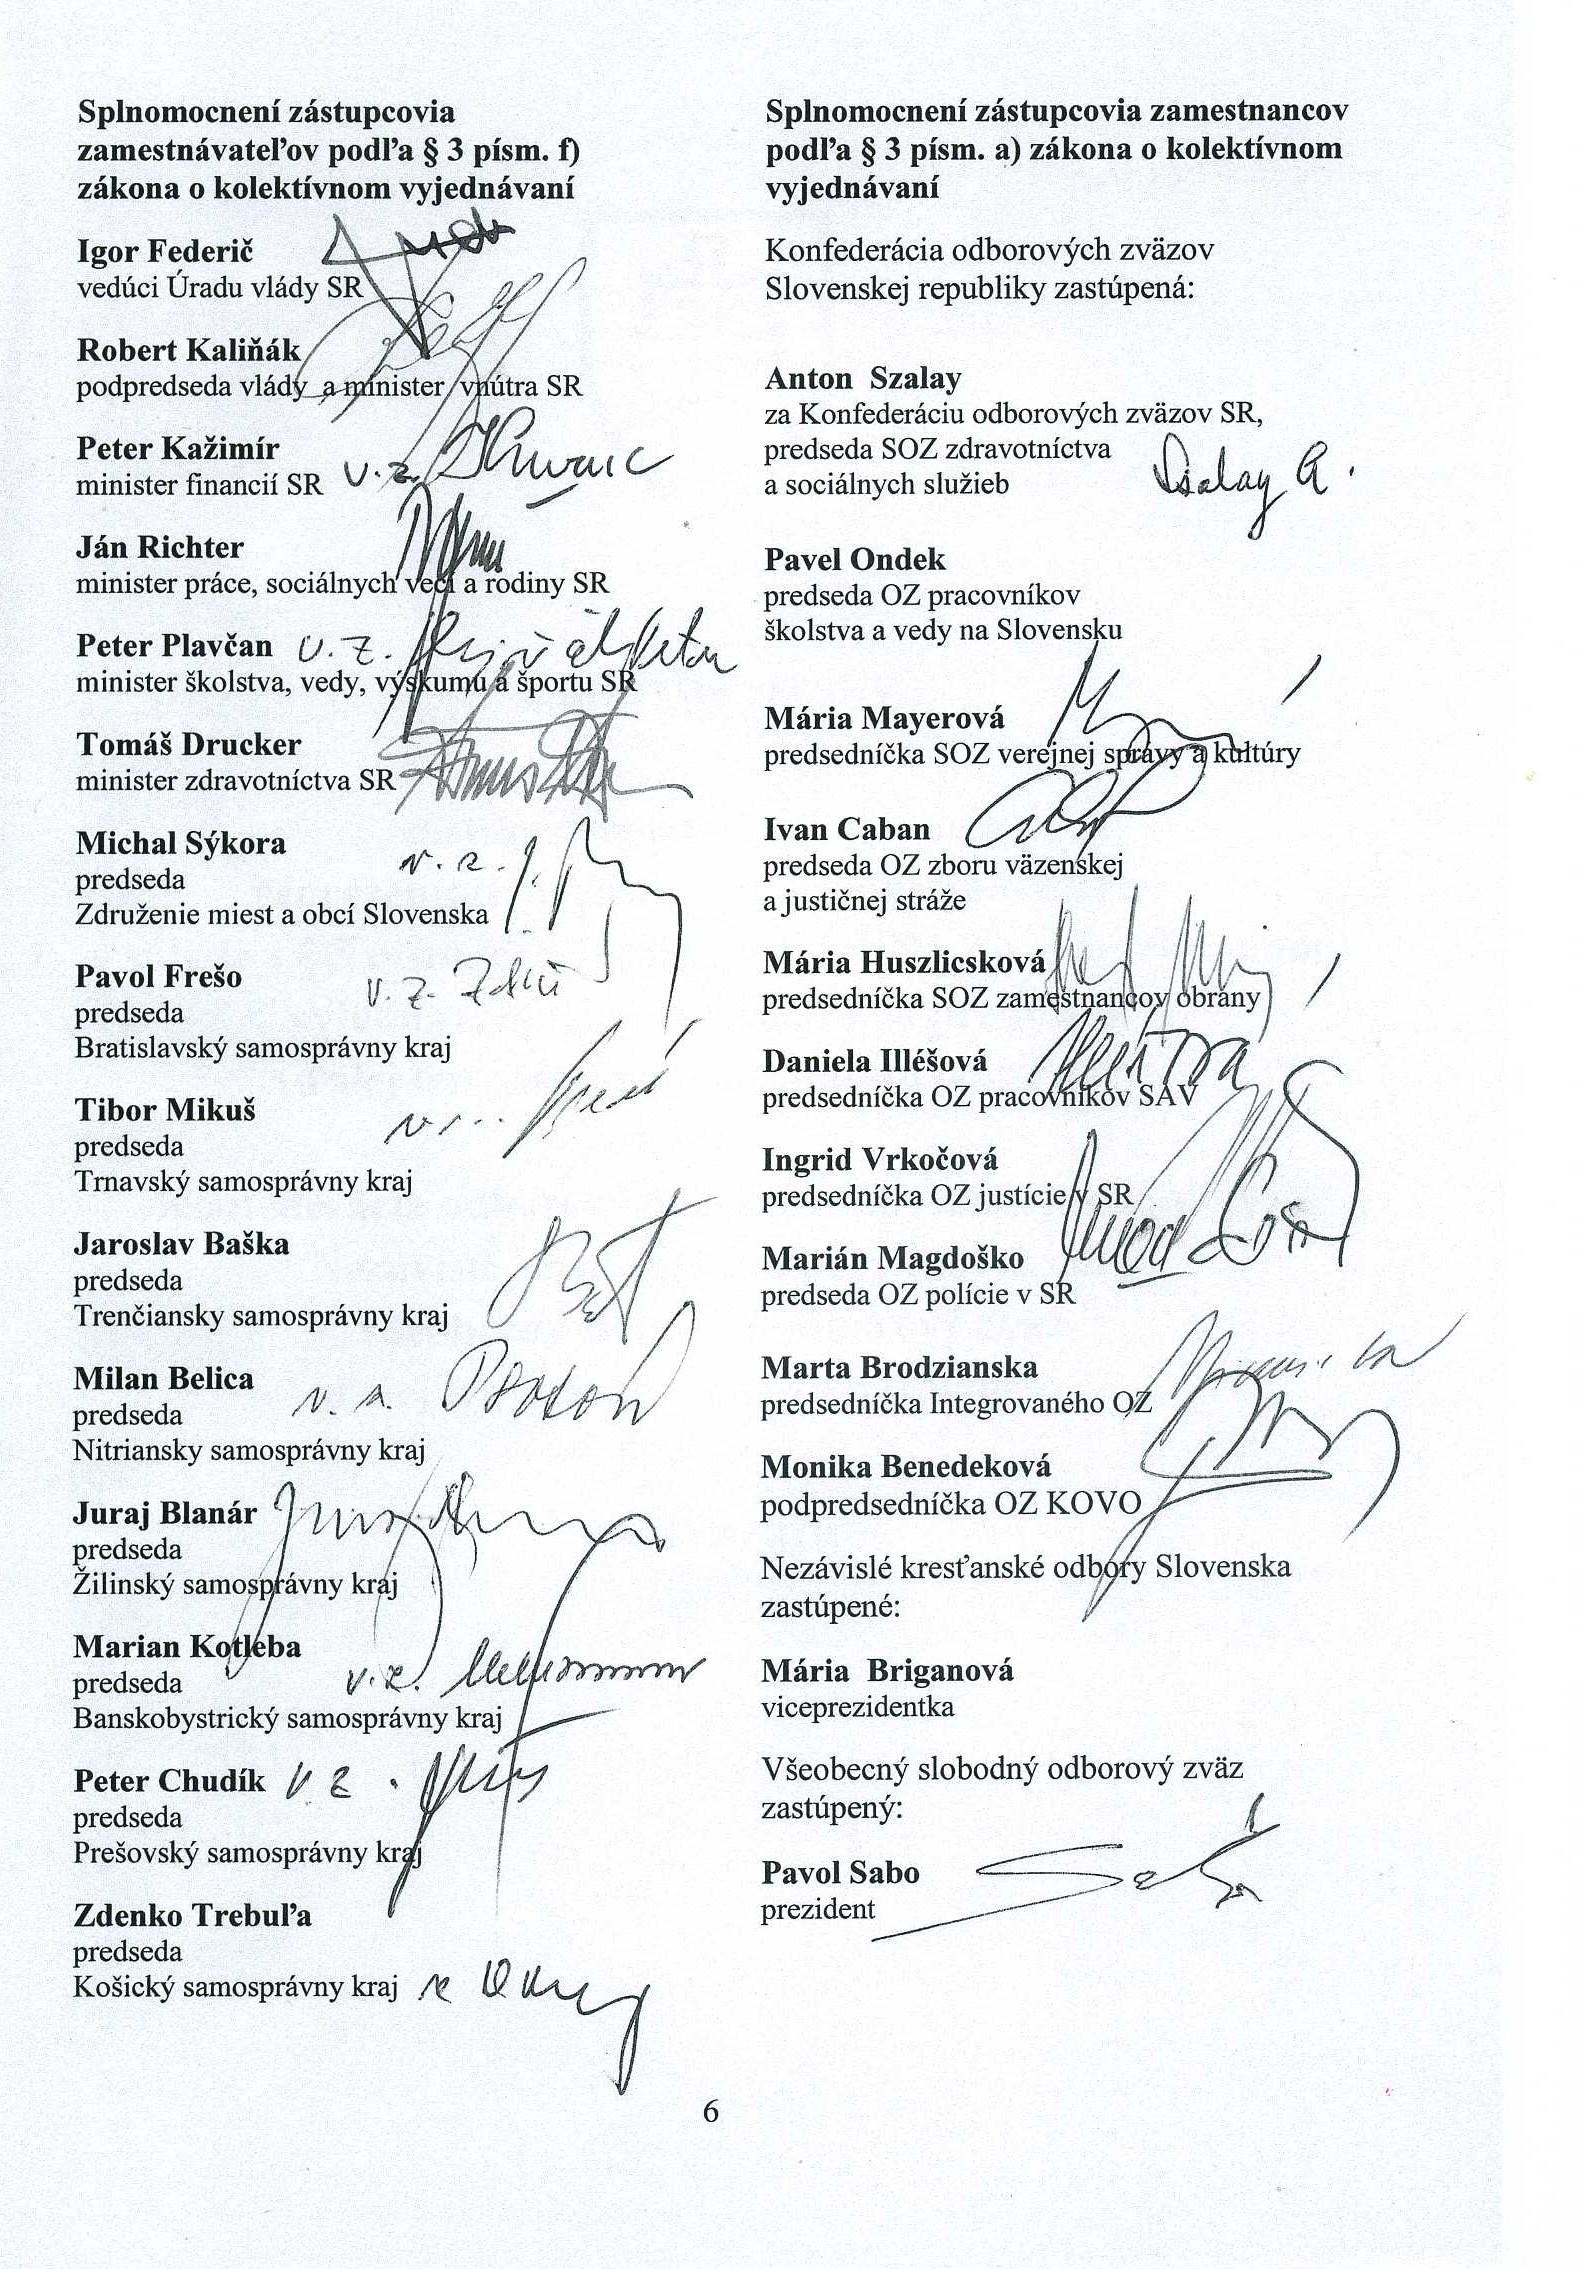 Splnomocnení zástupcovia
zamestnávateľov podľa § 3 písm. f)
zákona o kolektívnom vyjednávaní
Igor Federič
vedúci Úradu vlády SR
Robert Kaliňák
podpredseda vlády a minister vnútra SR
Peter Kažimír
minister financií SR v.z.
Ján Richter
minister práce, sociálnych vecí a rodiny SR
Peter Plavčan v.z.
minister školstva, vedy, výskumu a športu SR
Tomáš Drucker
minister zdravotníctva SR
Michal Sýkora
predseda
Združenie miest a obcí Slovenska
Pavol Frešo
predseda v.z.
Bratislavský samosprávny kraj
Tibor Mikuš
predseda
Trnavský samosprávny kraj
Jaroslav Baška
predseda
Trenčiansky samosprávny kraj
Milan Belica
predseda
Nitriansky samosprávny kraj
Juraj Blanár
predseda
Žilinský samosprávny kraj
Marian Kotleba
predseda v.z.
Banskobystrický samosprávny kraj
Peter Chudík v z.
predseda
Prešovský samosprávny kraj
Zdenko Trebuľa
predseda
Košický samosprávny kraj
Splnomocnení zástupcovia zamestnancov
podľa § 3 písm. a) zákona o kolektívnom
vyjednávaní
Konfederácia odborových zväzov
Slovenskej republiky zastúpená:
Anton Szalay
za Konfederáciu odborových zväzov SR,
predseda SOZ zdravotníctva
a sociálnych služieb Szalay A.
Pavel Ondek
predseda OZ pracovníkov
školstva a vedy na Slovensku
Mária Mayerová
predsedníčka SOZ verejnej správy a kultúry
Ivan Caban
predseda OZ zboru väzenskej
a justičnej stráže
Mária Huszlicsková
predsedníčka SOZ zamestnancov obrany
Daniela Illéšová
predsedníčka OZ pracovníkov SAV
Ingrid Vrkočová
predsedníčka OZ justície v SR
Marián Magdoško
predseda OZ polície v SR
Marta Brodzianska
predsedníčka Integrovaného OZ
Monika Benedeková
podpredsedníčka OZ KOVO
Nezávislé kresťanské odbory Slovenska
zastúpené:
Mária Briganová
viceprezidentka
Všeobecný slobodný odborový zväz
zastúpený:
Pavol Sabo
prezident
6